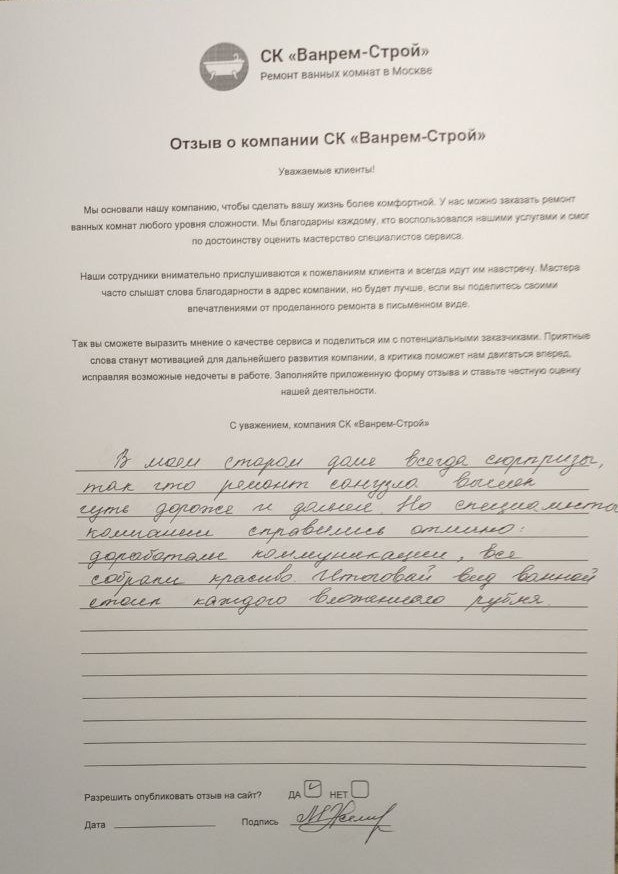 СК «Ванрем-Строй»
Ремонт ванных комнат в Москве
Отзыв о компании СК «Ванрем-Строй»
Уважаемые клиенты!
Мы основали нашу компанию, чтобы сделать вашу жизнь более комфортной. У нас можно заказать ремонт
ванных комнат любого уровня сложности. Мы благодарны каждому, кто воспользовался нашими услугами и смог
по достоинству оценить мастерство специалистов сервиса.
Наши сотрудники внимательно прислушиваются к пожеланиям клиента и всегда идут им навстречу. Мастера
часто слышат слова благодарности в адрес компании, но будет лучше, если вы поделитесь своими
впечатлениями от проделанного ремонта в письменном виде.
Так вы сможете выразить мнение о качестве сервиса и поделиться им с потенциальными заказчиками. Приятные
слова станут мотивацией для дальнейшего развития компании, а критика поможет нам двигаться вперед,
исправляя возможные недочеты в работе. Заполняйте приложенную форму отзыва и ставьте честную оценку
нашей деятельности.
С уважением, компания СК «Ванрем-Строй»
В моем старом доме всегда сюрпризы,
так что ремонт санузла вышел
чуть дороже и дольше. Но специалисты
компании справились отлично:
доработали коммуникации, все
собрали красиво. Итоговый вид ванной
стоил каждого вложенного рубля.
Разрешить опубликовать отзыв на сайт? ДА НЕТ
Дата Подпись